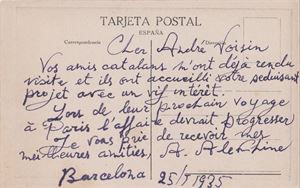 TARJETA POSTAL
ESPAÑA
Correspondencia
Cher André Voisin
Vos amis catalans m'ont déjà rendu
visite et ils ont accueilli votre séduisant
projet avec un vif intérêt.
Lors de leur prochain voyage
à Paris l'affaire devrait progresser
Je vous prie de recevoir mes
meilleures amitiés, A. Alekhine
Barcelona 25/5 1935